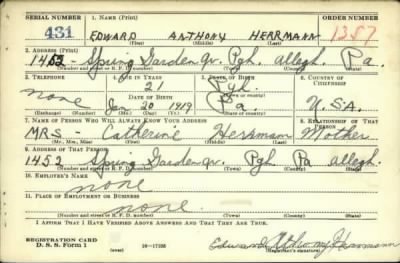 SERIAL NUMBER 1. NAME (Print) ORDER NUMBER
431 EDWARD ANTHONY HERRMANN 1257
(First) (Middle) (Last)
2. ADDRESS (Print)
1452 - Spring Garden Av. Pgh. Allegh. Pa.
(Number and street or R. F. D. number) (Town) (County) (State)
3. TELEPHONE 4. AGE IN YEARS 5. PLACE OF BIRTH 6. COUNTRY OF CITIZENSHIP
none 21 Pgh.
DATE OF BIRTH (Town or county)
Jan. 20 1919 Pa. U.S.A.
(Exchange) (Number) (Mo.) (Day) (Yr.) (State or country)
7. NAME OF PERSON WHO WILL ALWAYS KNOW YOUR ADDRESS 8. RELATIONSHIP OF THAT PERSON
MRS - Catherine Herrmann Mother
(Mr., Mrs., Miss) (First) (Middle) (Last)
9. ADDRESS OF THAT PERSON
1452 Spring Garden Av. Pgh Pa Allegh.
(Number and street or R. F. D. number) (Town) (County) (State)
10. EMPLOYER'S NAME
none
11. PLACE OF EMPLOYMENT OR BUSINESS
none.
(Number and street or R. F. D. number) (Town) (County) (State)
I AFFIRM THAT I HAVE VERIFIED ABOVE ANSWERS AND THAT THEY ARE TRUE.
REGISTRATION CARD
D. S. S. Form 1 (over) 16—17105 Edward Anthony Herrmann